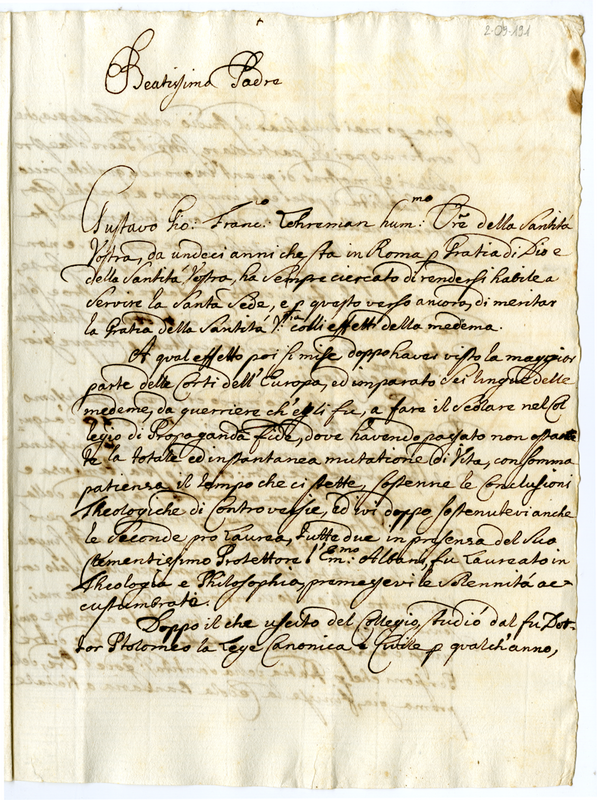 2-09-191
Beatissimo Padre
Gustavo Gio: Franc.o Lehreman hum.mo Ore della Santità
Vostra, da undeci anni che sta in Roma p Gratia di Dio e
della Santità Vostra, ha sempre ciercato di rendersi habile a
servire la Santa Sede, e p questo verso ancora, di meritar
la Gratia della Santità V.ra colli effetti della medema.
A qual effetto poi si mise doppo haver visto la maggior
parte delle Corti dell'Europa, ed imparato sei lingue delle
medeme, da guerriere ch'egli fu, a fare il Scolare nel Col
legio di Propaganda fide, dove havendo passato non ostan
te la totale ed instantanea mutatione di Vita, con somma
patienza il tempo che ci stette, sostenne le Conclusioni
Theologiche di Controversie, ed ivi doppo sostenutevi anche
le Seconde pro Laurea, tutte due in presenza del Suo
Clementissimo Protettore l'Em.mo Albani, fu Laureato in
Theologia e Philosophia, premessevi le Solennità ac-
custumbrate.
Doppo il che uscito del Collegio, studiò dal fu Dot-
tor Ptolomeo la Lege Canonica e Civile p qualch'anno,